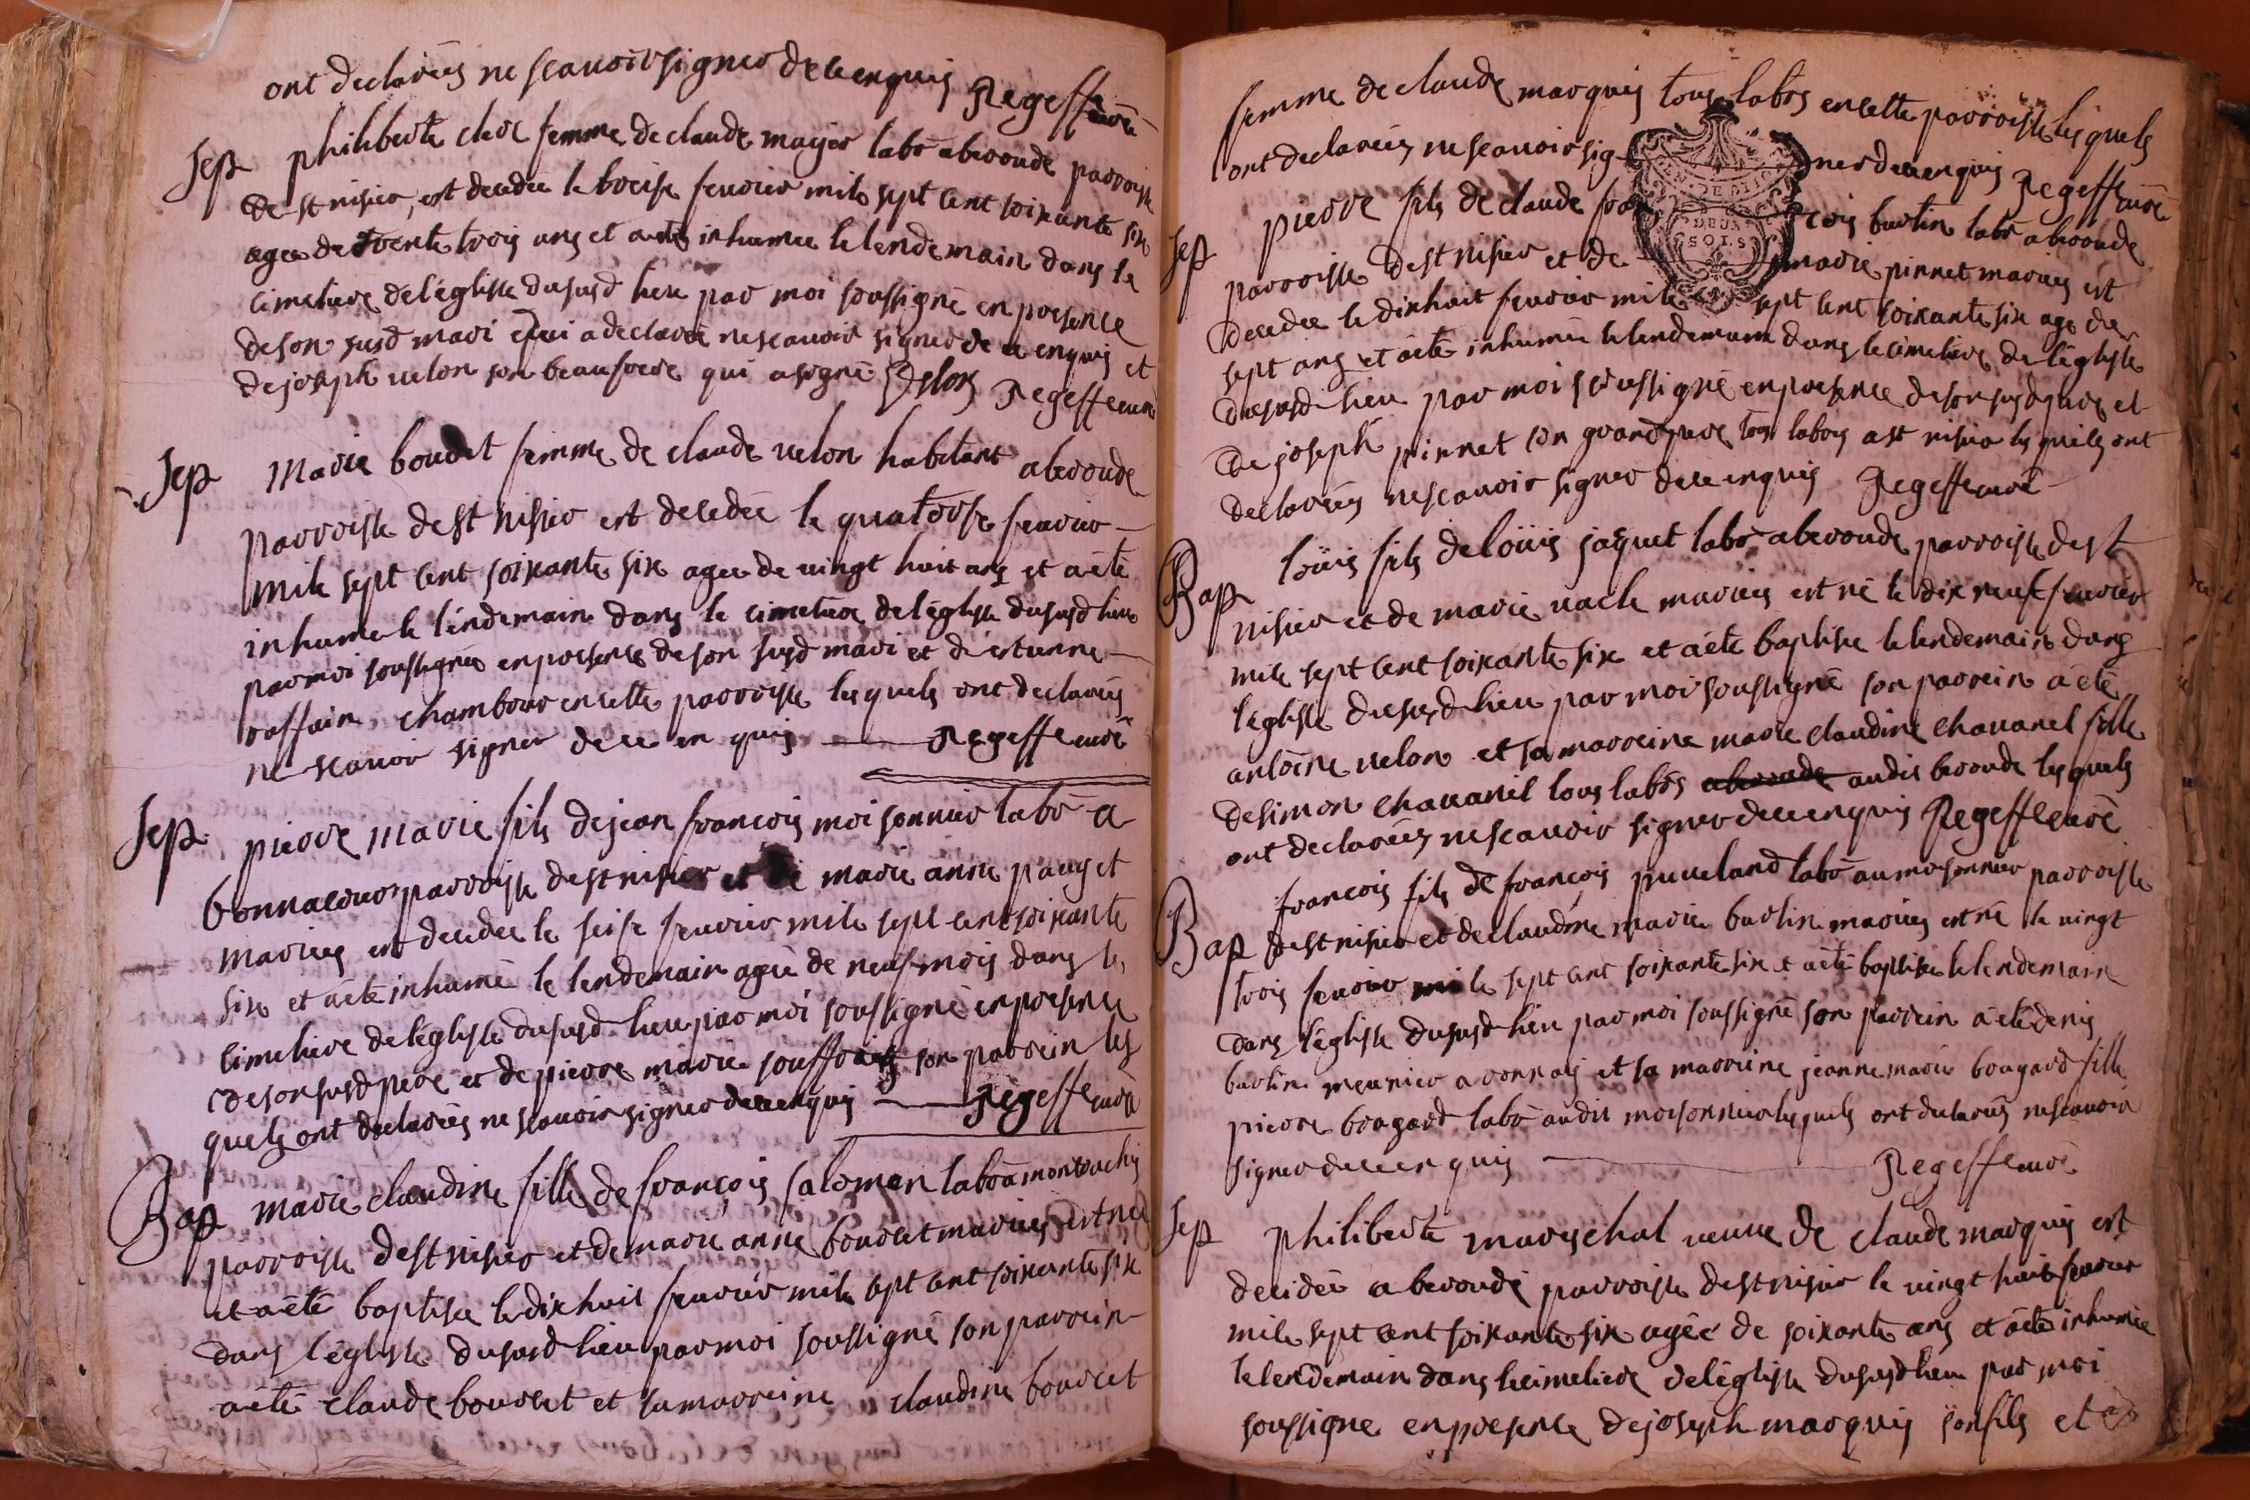 ont declarées ne scauoir signer de ce enquis Regeffe curé
Sep philiberte clerc femme de claude mayer labr aberoude parroisse
de st nisier, est decedée le treise feurier mile sept cent soixante six
agee de trente trois ans et a eté inhumée le lendemain dans le
cimetiere de l'église du susd lieu par moi soussigné en presence
de son susd mari qui a declaré ne scauoir signer de ce enquis et
de joseph uelon son beaufrere qui a signé Velon Regeffe curé
Sep Marie boudet femme de claude uelon habitant aberoude
parroisse de st nisier est decedée le quatorse feurier
mile sept cent soixante six agee de uingt huit ans et a eté
inhumee le lendemain dans le cimetiere de l'églisse du susd lieu
par moi soussigné en presence de son susd mari et d'estienne
raffain chambour en cette parroisse lesquels ont declarées
ne scauoir signer de ce en quis Regeffe curé
Sep pierre marie fils de jean francois moisonnier labr a
bonnacour parroisse de st nisier et de marie anne pauget
mariees est decedee le seise feurier mile sept cent soixante
six et a eté inhumé le lendemain ageé de neuf mois dans le
cimetiere de l'églisse du susd lieu par moi soussigné en presence
de son susd pere et de pierre marie souffrais son parrein les
quels ont declarées ne scauoir signer de ce enquis Regeffe curé
Bap marie claudine fille de françois salomon labr a montouchis
parroisse de st nisier et de marie anne bourcet mariees est née
et a eté baptisée le dix huit feurier mile sept cent soixante six
dans l'églisse du susd lieu par moi soussigné son parrein
a eté claude bourcet et sa marreine claudine bourcet
femme de claude marquis tous labrs en cette parroisse lesquels
ont declarées ne scauoir signer de ce enquis Regeffe curé
DEUX
SOLS
Sep pierre fils de claude francois burtin labr aberoude
parroisse de st nisier et de marie pinnet mariees est
decedee le dixhuit feurier mile sept cent soixante six age de
sept ans et a eté inhumée le lendemain dans le cimetiere de l'églisse
du susd lieu par moi soussigné en presence de son susd pere et
de joseph pinnet son grand pere tous labrs a st nisier lesquels ont
declarées ne scauoir signer de ce enquis Regeffe curé
Bap loüis fils de loüis jaquet labr aberoude parroisse de st
nisier et de marie uacle mariees est né le dix neuf feurier
mile sept cent soixante six et a eté baptisée le lendemain dans
l'églisse du susd lieu par moi soussigné son parrein a eté
antoine uelon et sa marreine marie claudine chauanel fille
de simon chauanel tous labrs aberoude audis beroude lesquels
ont declarées ne scauoir signer de ce enquis Regeffe curé
Bap francois fils de françois puueland labr au moisonnier parroisse
de st nisier et de claudine marie burtin mariées est né le uingt
trois feurier mile sept cent soixante six et a eté baptisée le lendemain
dans l'églisse du susd lieu par moi soussigné son parrein a eté denis
burtin meunier a ronnais et sa marreine jeanne marie bougard fille
pierre bougard labr audis moisonnier lesquels ont declarées ne scauoir
signer de ce en quis Regeffe curé
Sep philiberte mareschal ueuue de claude marquis est
decidée a beroude parroisse de st nisier le uingt huit feurier
mile sept cent soixante six agée de soixante ans et a eté inhumée
le lendemain dans le cimetiere de l'églisse du susd lieu par moi
soussigne en presence de joseph marquis son fils et